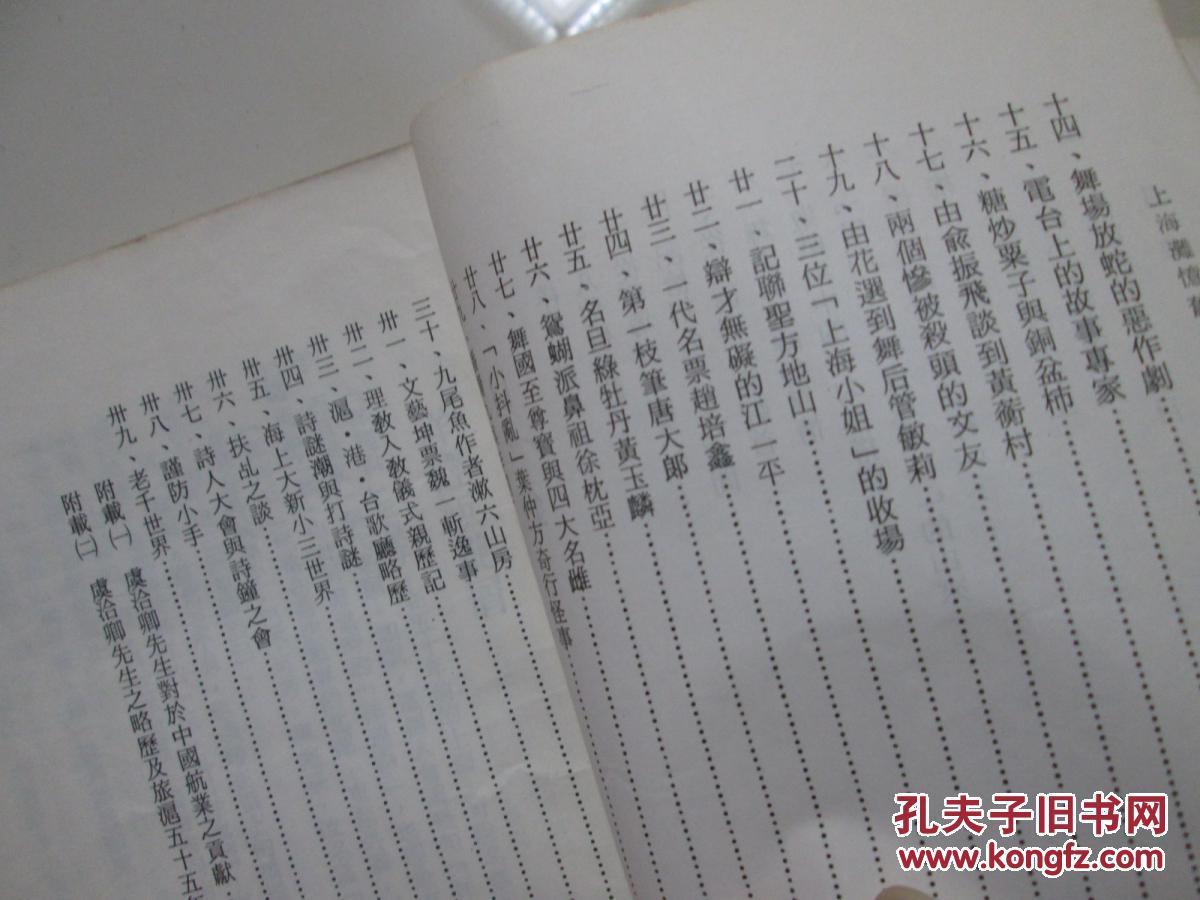 上海灘憶
十四、舞場放蛇的惡作劇
十五、電台上的故事專家
十六、糖炒栗子與銅盆柿
十七、由俞振飛談到黃蘅村
十八、兩個慘被殺頭的文友
十九、由花選到舞后管敏莉
二十、三位「上海小姐」的收場
廿一、記聯聖方地山
廿二、辯才無礙的江一平
廿三、一代名票趙培鑫
廿四、第一枝筆唐大郎
廿五、名旦綠牡丹黃玉麟
廿六、鴛蝴派鼻祖徐枕亞
廿七、舞國至尊寶與四大名雌
廿八、「小抖亂」葉仲方奇行怪事
三十、九尾魚作者漱六山房
卅一、文藝坤票魏一斬逸事
卅二、理教入教儀式親歷記
卅三、滬·港·台歌廳略歷
卅四、詩謎潮與打詩謎
卅五、海上大新小三世界
卅六、扶乩之談
卅七、詩人大會與詩鐘之會
卅八、謹防小手
卅九、老千世界
附載㈠ 虞洽卿先生對於中國航業之貢獻
附載㈡ 虞洽卿先生之略歷及旅滬五十五年
孔夫子旧书网
www.kongfz.com